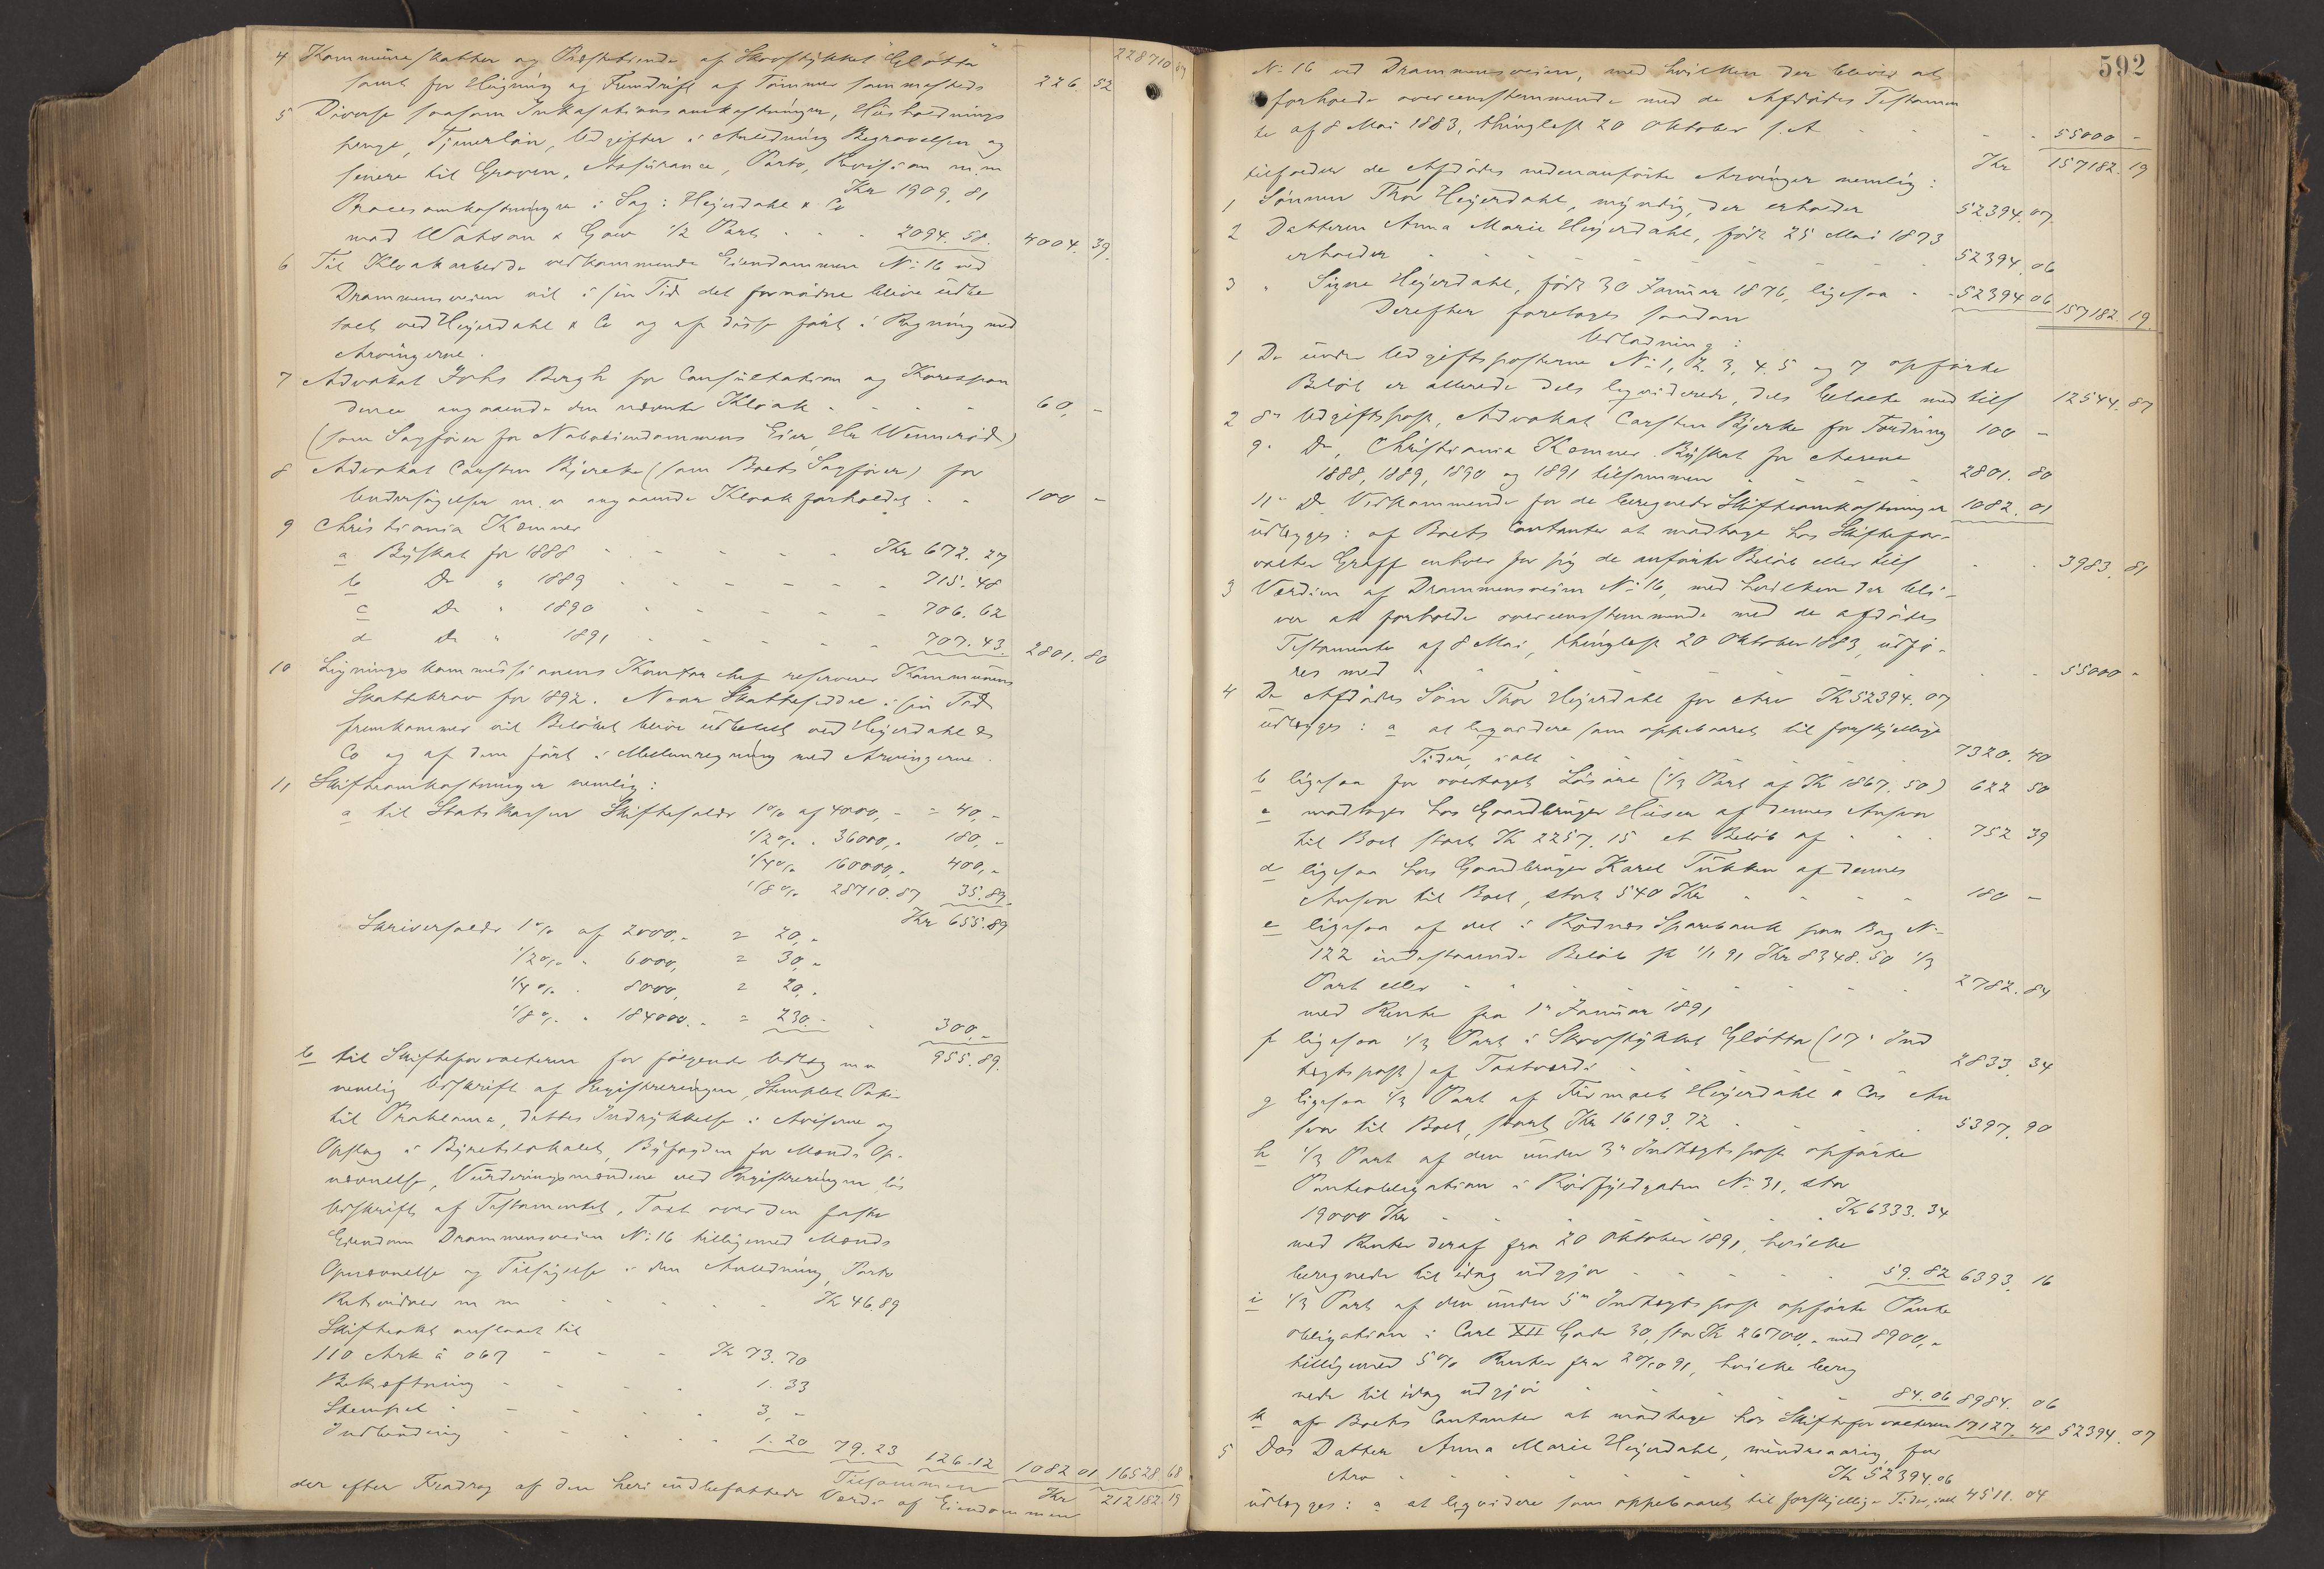 228710 87
4 Kommuneskatter og Præstetiende af Skovstykket "Glötta"
samt for Hugning og Fremdrift af Tømmer sammesteds 226. 52
5 Diverse saasom Inkassationsomkostninger, Husholdnings
penge, Tjenerløn, Udgifter i Anledning Begravelsen og
senere til Graven, Assurance, Porto, Revision m.m
Kr 1909. 81
Procesomkostninger i Sag: Heyerdahl & Co
mod Watson & Gow 1/2 Part - - - 2094. 58. 4004. 39.
6 Til Kloakarbeide vedkommende Eiendommen No 16 ved
Drammensveien vil i sin Tid det fornødne blive udbe
talt ved Heyerdahl & Co og af disse ført i Regning med
Arvingerne.
7 Advokat Johs Bergh for Consultation og Korrespon
dence angaaende den nævnte Kloak - - - - 60, -
(som Sagfører for Naboeiendommens Eier, Hr Wennerød)
8 Advokat Carsten Bjerke (som Boets Sagfører) for
Undersøgelser m.v angaaende Kloakforholdet - - 100 -
9 Christiania Kæmner
a Byskat for 1888 - - - - - Kr 672. 27
b Do " 1889 - - - - - - 715. 48
c Do " 1890 - - - - - 706. 62
d Do " 1891 - - - - - 707. 43. 2801. 80
10 Ligningskommissionens Kontorchef reserverer Kommunens
Skattekrav for 1892. Naar Skattesedde i sin Tid
fremkommer vil Beløbet blive udbetalt ved Heyerdahl &
Co og af dem ført i Mellemregning med Arvingerne.
11 Skifteomkostninger nemlig:
a til Statskassen Skiftefaldr 1% af 4000, - = 40, -
1/2% " 36000, - 180, -
1/4% 160000, - 400, -
1/8% 28710. 87 35. 89.
Kr 655. 89
Skriverfaldr 1% af 2000, - = 20, -
1/2% " 6000, = 30, -
1/4% " 8000, = 20, -
1/8% " 184000. - = 230. - - 300, -
955. 89.
b til Skifteforvalteren for følgende Udlæg m m
nemlig Udskrift af Registreringen, Stemplet Papir
til Proklama, dettes Indrykkelse i Aviserne og
Opslag i Byretslokalet, Byfogden for Mænds Op-
nævnelse, Vurderingsmændene ved Registreringen,
Udskrift af Testamentet, Taxt over den faste
Eiendom Drammensveien No 16 tilligemed Mænds
Opnævnelse og Tilsigelse i den Anledning, Porto
Retsvidner m m - - - - - Kr 46. 89
Skifteakt anslaaet til
110 Ark à 067 - - - Kr 73. 70
Bekræftning - - - - 1. 33
Stempel - - - - - 3, -
Indbinding - - - - - 1. 20 79. 23 126. 12 1082 01 16528 68
Tilsammen Kr 212182. 19
der efter Fradrag af den heri indbefattede Værdi af Eiendommen
592
No 16 ved Drammensveien, med hvilken der bliver at
forholde overensstemmende med de Afdødes Testamen
te af 8 Mai 1883, thinglæst 20 Oktober s. A - - - 55000 -
Kr 157182. 19
tilfalder de Afdødes nedenanførte Arvinger nemlig:
1 Sønnen Thor Heyerdahl, myndig, der erholder 52394. 07.
2 Datteren Anna Marie Heyerdahl, født 25 Mai 1873
erholder - - - - - - - 52394. 06
3 " Signe Heyerdahl, født 30 Januar 1876, ligesaa - - 52394 06 157182. 19.
Derefter foretoges saadan
Udlodning:
1 De under Udgiftsposterne No 1, 2. 3, 4. 5 og 7 opførte
Beløb er allerede dels liqviderede, dels betalte med tils 12544. 87
2 8de Udgiftspost, Advokat Carsten Bjerke for Fordring 100 -
9. Do, Christiania Kæmner. Byskat for Aarene
1888, 1889, 1890 og 1891 tilsammen - - - - 2801. 80
11te Do Vedkommende for de beregnede Skifteomkostninger 1082. 01
udlægges: af Boets Contanter at modtage hos Skiftefor-
valter Graff enhver for sig de anførte Beløb eller tils - - 3983. 81
3 Værdien af Drammensveien No 16, med hvilken der bli-
ver at forholde overensstemmende med de afdødes
Testamente af 8 Mai, thinglæst 20 Oktober 1883, udfø-
res med - - - - - 55000 -
4 De Afdødes Søn Thor Heyerdahl for Arv Kr 52394. 07
udlægges: a at liqvidere som oppebaaret til forskjellige
Tider, ialt - - - - 7320. 40
b ligesaa for overtaget Løsøre (1/3 Part af Kr 1867. 50) 622 50
c modtages hos Gaardbruger Husen af dennes Ansvar
til Boet stort Kr 2257. 15 et Beløb af - - - 752 39
d ligesaa hos Gaardbruger Karel Tukken af dennes
Ansvar til Boet, stort 540 Kr - - - - 180 -
e ligesaa af det i Rødnes Sparebank paa Bog No
122 indestaaende Beløb pr 1/1 91 Kr 8348. 50 1/3
Part eller - - - - - - 2782. 84
med Renter fra 1ste Januar 1891
f ligesaa 1/3 Part i Skovstykket Glötta (17. Ind
tægtspost) af Taxtværdi - - - - 2833. 34
g ligesaa 1/3 Part af Firmaet Heyerdahl & Cos An
svar til Boet, stort Kr 16193. 72 - - - - 5397. 90
h 1/3 Part af den under 3die Indtægtspost opførte
Panteobligation i Rosfjeldgaden No 31, stor
19000 Kr - - - - Kr 6333. 34
med Renter deraf fra 20 Oktober 1891, hvilke
beregnede til idag udgjør - - - - 59. 82 6393. 16
i 1/3 Part af den under 5te Indtægtspost opførte Pante
obligation i Carl XII Gade 30, stor Kr 26700, - med 8900, -
tilligemed 5% Renter fra 20/10 91, hvilke bereg
nede til idag udgjør - - - - 84. 06 8984. 06
k af Boets Contanter at modtage hos Skifteforvalteren 17127. 48 52394. 07
5 Dos Datter Anna Marie Heyerdahl, mindreaarig, for
Arv - - - - - Kr 52394. 06
udlægges: a at liqvidere som oppebaaret til forskjellige Tider, ialt 4511. 04